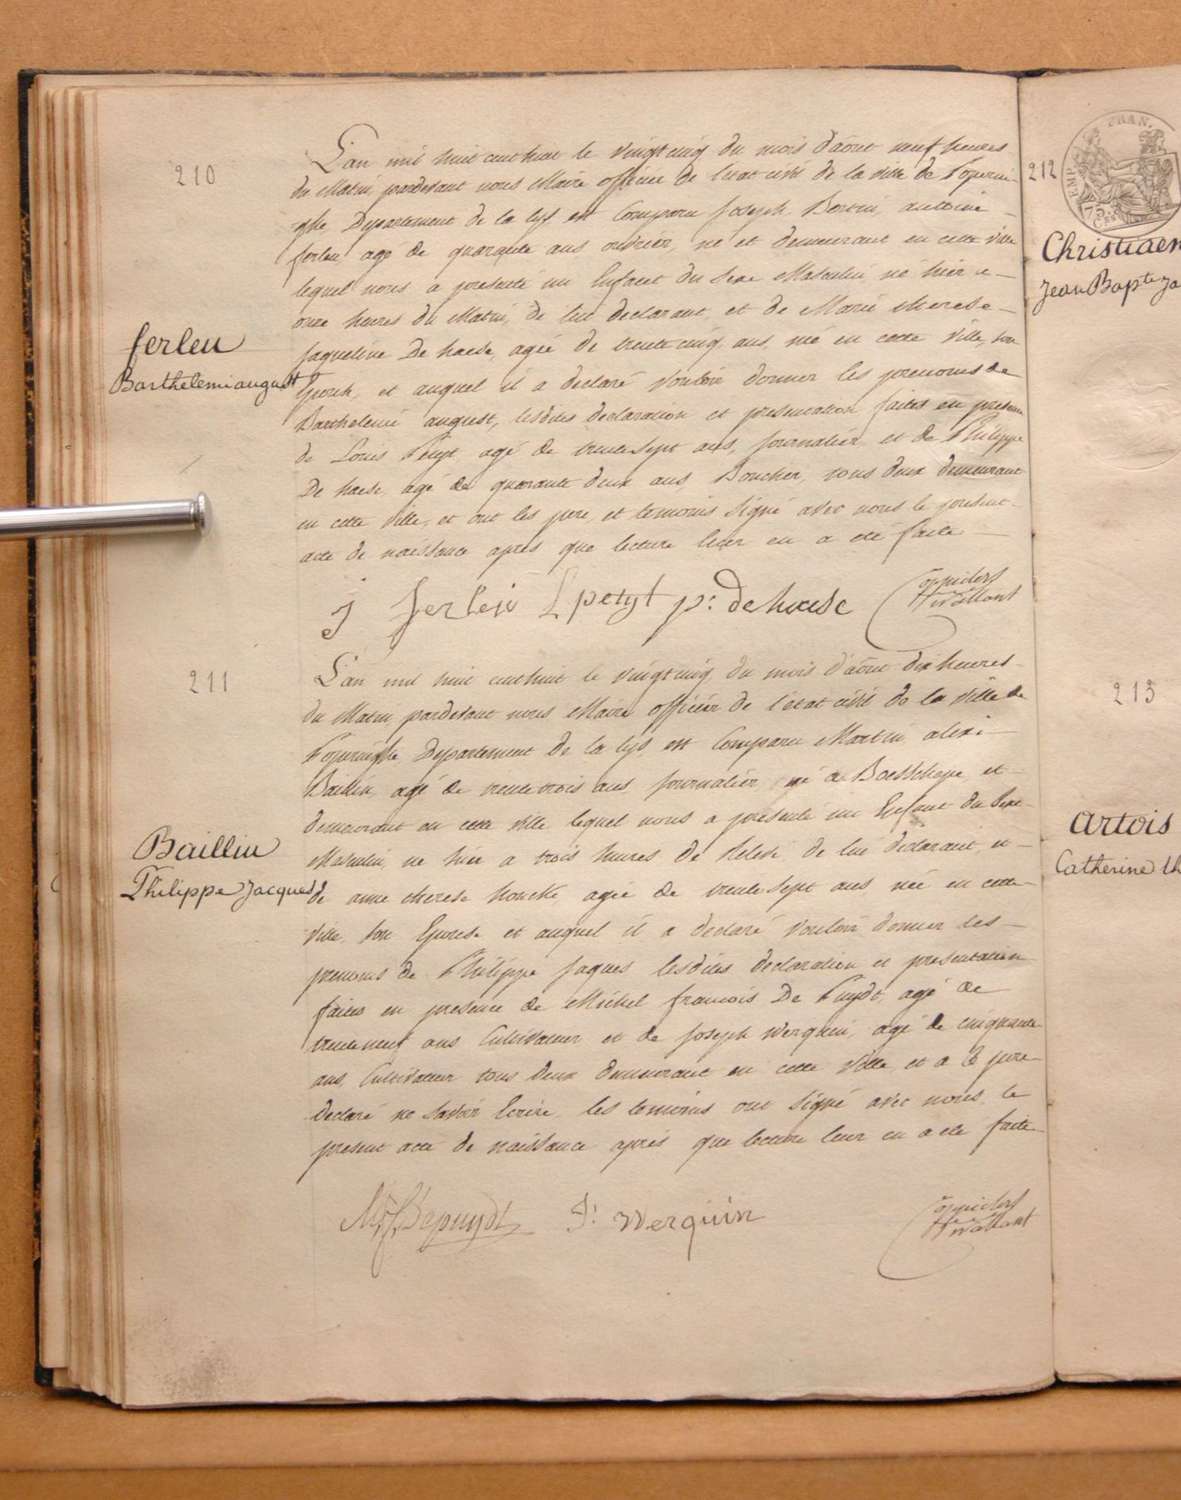 210
ferleu
Barthelemi august
L'an mil huit cent huit le vingt cinq du mois d'aôut neuf heures
du Matin pardevant nous Maire officier de l'etat civil de la ville de Poperin-
ghe Departement de la lys est Comparu Joseph antoine
ferleu agé de quarante ans ouvrier, né et demeurant en cette ville
lequel nous a présenté un Enfant du Sexe Masculin né hier a
onze heures du Matin, de lui declarant, et de Marie therese
Jaqueline De haese, agée de trente cinq ans, née en cette ville, son
Epouse, et auquel il a declaré vouloir donner les prenoms de
Barthelemi august, lesdites declaration et presentation faites en presence
de Louis Petyt, agé de trente sept ans, journalier, et de Philippe
De haese, agé de quarante deux ans Boucher, tous deux demeurant
en cette ville, et ont les pere, et temoins signé avec nous le present
acte de naissance apres que lecture leur en a eté faite
j ferleu L petyt p: de haese
211
Baillin
Philippe Jacques
L'an mil huit cent huit le vingt cinq du mois d'aôut dix heures
du Matin pardevant nous Maire officier de l'état civil de la ville de
Poperinghe, Departement de la lys, est Comparu Martin alexi
agé de trente trois ans journalier, né a Boesschepe, et
demeurant en cette ville lequel nous a presenté un Enfant du Sexe
Masculin, né hier a trois heures de de lui declarant, et
de anne therese agée de trente sept ans née en cette
ville, son Epouse et auquel il a declaré vouloir donner les
prenoms de Philippe Jaques lesdites declaration et presentation
faites en presence de Michel francois De Puydt, agé de
trente neuf ans Cultivateur et de Joseph Werquin, agé de cinquante
ans, Cultivateur tous deux demeurant en cette ville, et a le pere
declaré ne savoir Ecrire, les temoins ont signé avec nous le
present acte de naissance après que lecture leur en a eté faite
M f Depuydt J: Werquin
212
Christiaen
Jean Bapte Ja
213
Artois
Catherine th